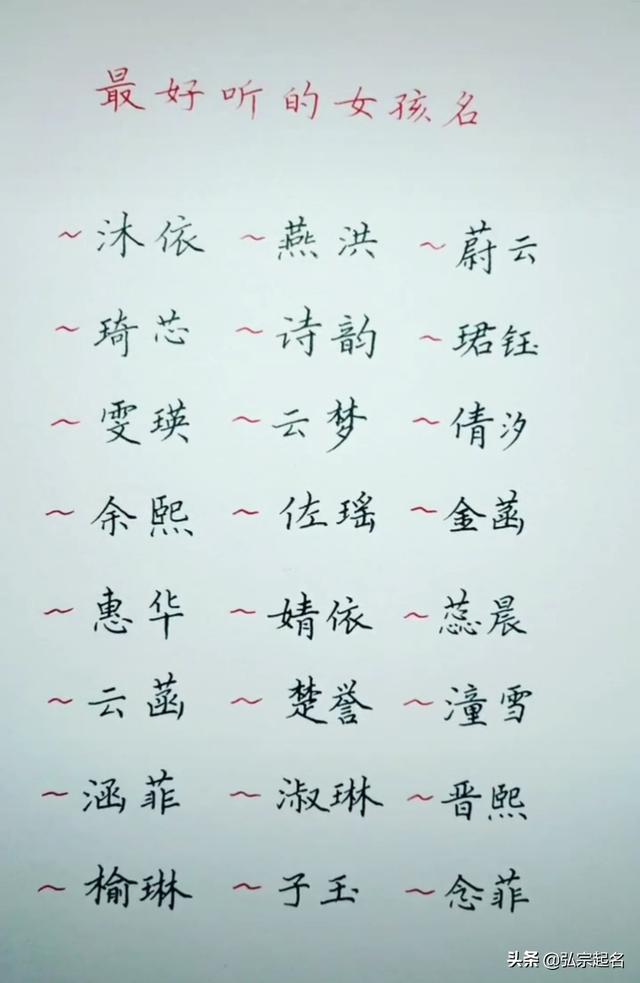 最好听的女孩名
~沐依 ~燕洪 ~蔚云
~琦芯 ~诗韵 ~珺钰
~雯瑛 ~云梦 ~倩汐
~余熙 ~佐瑶 ~金菡
~惠华 ~婧依 ~蕊晨
~云菡 ~楚誉 ~潼雪
~涵菲 ~淑琳 ~晋熙
~榆琳 ~子玉 ~念菲
头条 @弘宗起名